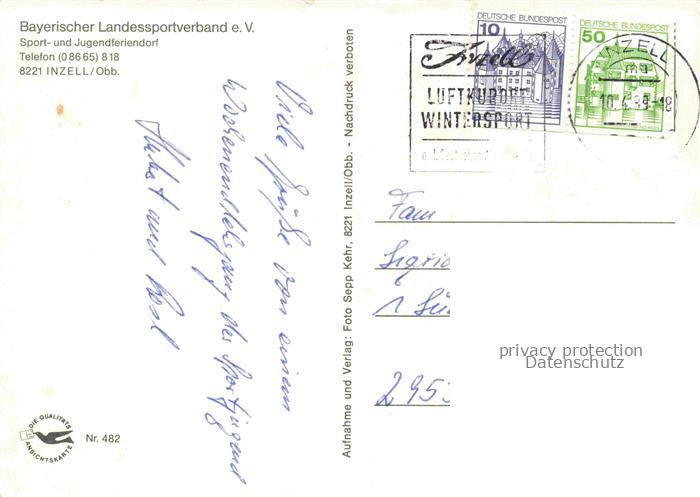 Bayerischer Landessportverband e. V.
Sport- und Jugendferiendorf
Telefon (0 86 65) 8 18
8221 INZELL/Obb.
Viele Grüße von einem
Wochenendlehrgang der Sportjugend
Hubert und Rosl
DIE QUALITÄTS
ANSICHTSKARTE
Nr. 482
Aufnahme und Verlag: Foto Sepp Kehr, 8221 Inzell/Obb. - Nachdruck verboten
DEUTSCHE BUNDESPOST
10
DEUTSCHE BUNDESPOST
50
Inzell
LUFTKURORT
WINTERSPORT
INZELL
10.4.88-18
Fam
Sigrid
1
295
privacy protection
Datenschutz